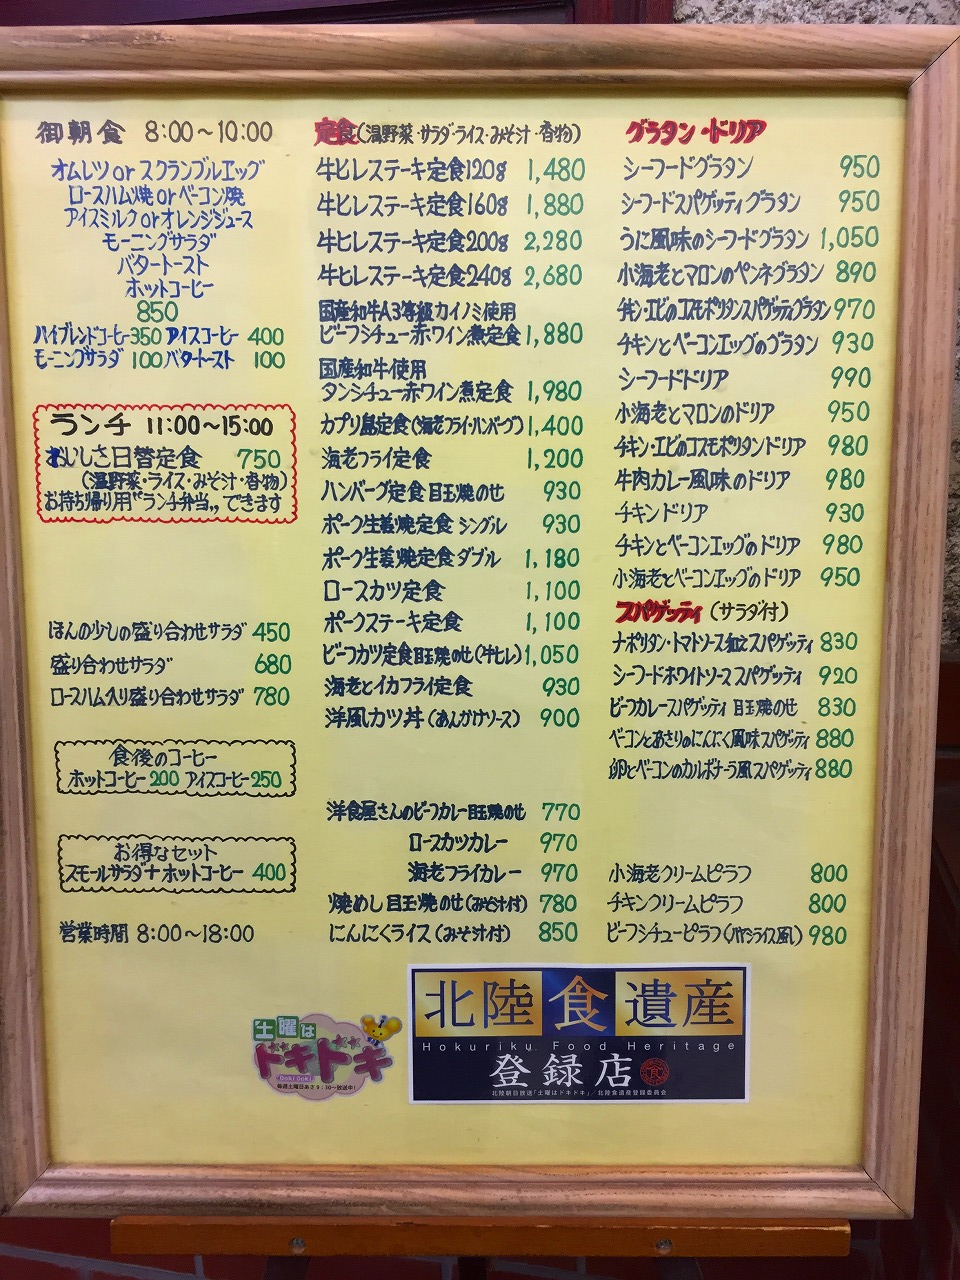 御朝食 8:00～10:00
オムレツorスクランブルエッグ
ロースハム焼orベーコン焼
アイスミルクorオレンジジュース
モーニングサラダ
バタートースト
ホットコーヒー
850
ハイブレンドコーヒー350 アイスコーヒー 400
モーニングサラダ 100 バタートースト 100
ランチ 11:00～15:00
おいしさ日替定食 750
(温野菜・ライス・みそ汁・香物)
お持ち帰り用〝ランチ弁当〟できます
ほんの少しの盛り合わせサラダ 450
盛り合わせサラダ 680
ロースハム入り盛り合わせサラダ 780
食後のコーヒー
ホットコーヒー200 アイスコーヒー250
お得なセット
スモールサラダ+ホットコーヒー 400
営業時間 8:00～18:00
定食(温野菜・サラダ・ライス・みそ汁・香物)
牛ヒレステーキ定食120g 1,480
牛ヒレステーキ定食160g 1,880
牛ヒレステーキ定食200g 2,280
牛ヒレステーキ定食240g 2,680
国産和牛A3等級カイノミ使用
ビーフシチュー赤ワイン煮定食 1,880
国産和牛使用
タンシチュー赤ワイン煮定食 1,980
カプリ島定食(海老フライ・ハンバーグ) 1,400
海老フライ定食 1,200
ハンバーグ定食 目玉焼のせ 930
ポーク生姜焼定食 シングル 930
ポーク生姜焼定食 ダブル 1,180
ロースカツ定食 1,100
ポークステーキ定食 1,100
ビーフカツ定食目玉焼のせ(牛ヒレ) 1,050
海老とイカフライ定食 930
洋風カツ丼(あんかけソース) 900
洋食屋さんのビーフカレー目玉焼のせ 770
ロースカツカレー 970
海老フライカレー 970
焼めし 目玉焼のせ(みそ汁付) 780
にんにくライス(みそ汁付) 850
グラタン・ドリア
シーフードグラタン 950
シーフードスパゲッティグラタン 950
うに風味のシーフードグラタン 1,050
小海老とマロンのペンネグラタン 890
チキン・エビのコスモポリタンスパゲッティグラタン 970
チキンとベーコンエッグのグラタン 930
シーフードドリア 990
小海老とマロンのドリア 950
チキン・エビのコスモポリタンドリア 980
牛肉カレー風味のドリア 980
チキンドリア 930
チキンとベーコンエッグのドリア 980
小海老とベーコンエッグのドリア 950
スパゲッティ(サラダ付)
ナポリタン・トマトソース和えスパゲッティ 830
シーフードホワイトソーススパゲッティ 920
ビーフカレースパゲッティ 目玉焼のせ 830
ベーコンとあさりのにんにく風味スパゲッティ 880
卵とベーコンのカルボナーラ風スパゲッティ 880
小海老クリームピラフ 800
チキンクリームピラフ 800
ビーフシチューピラフ(ハヤシライス風) 980
土曜は
ドキドキ
Doki Doki
毎週土曜日あさ9:30～放送中!
北陸食遺産
Hokuriku Food Heritage
登録店
食
北陸朝日放送「土曜はドキドキ」／北陸食遺産登録委員会